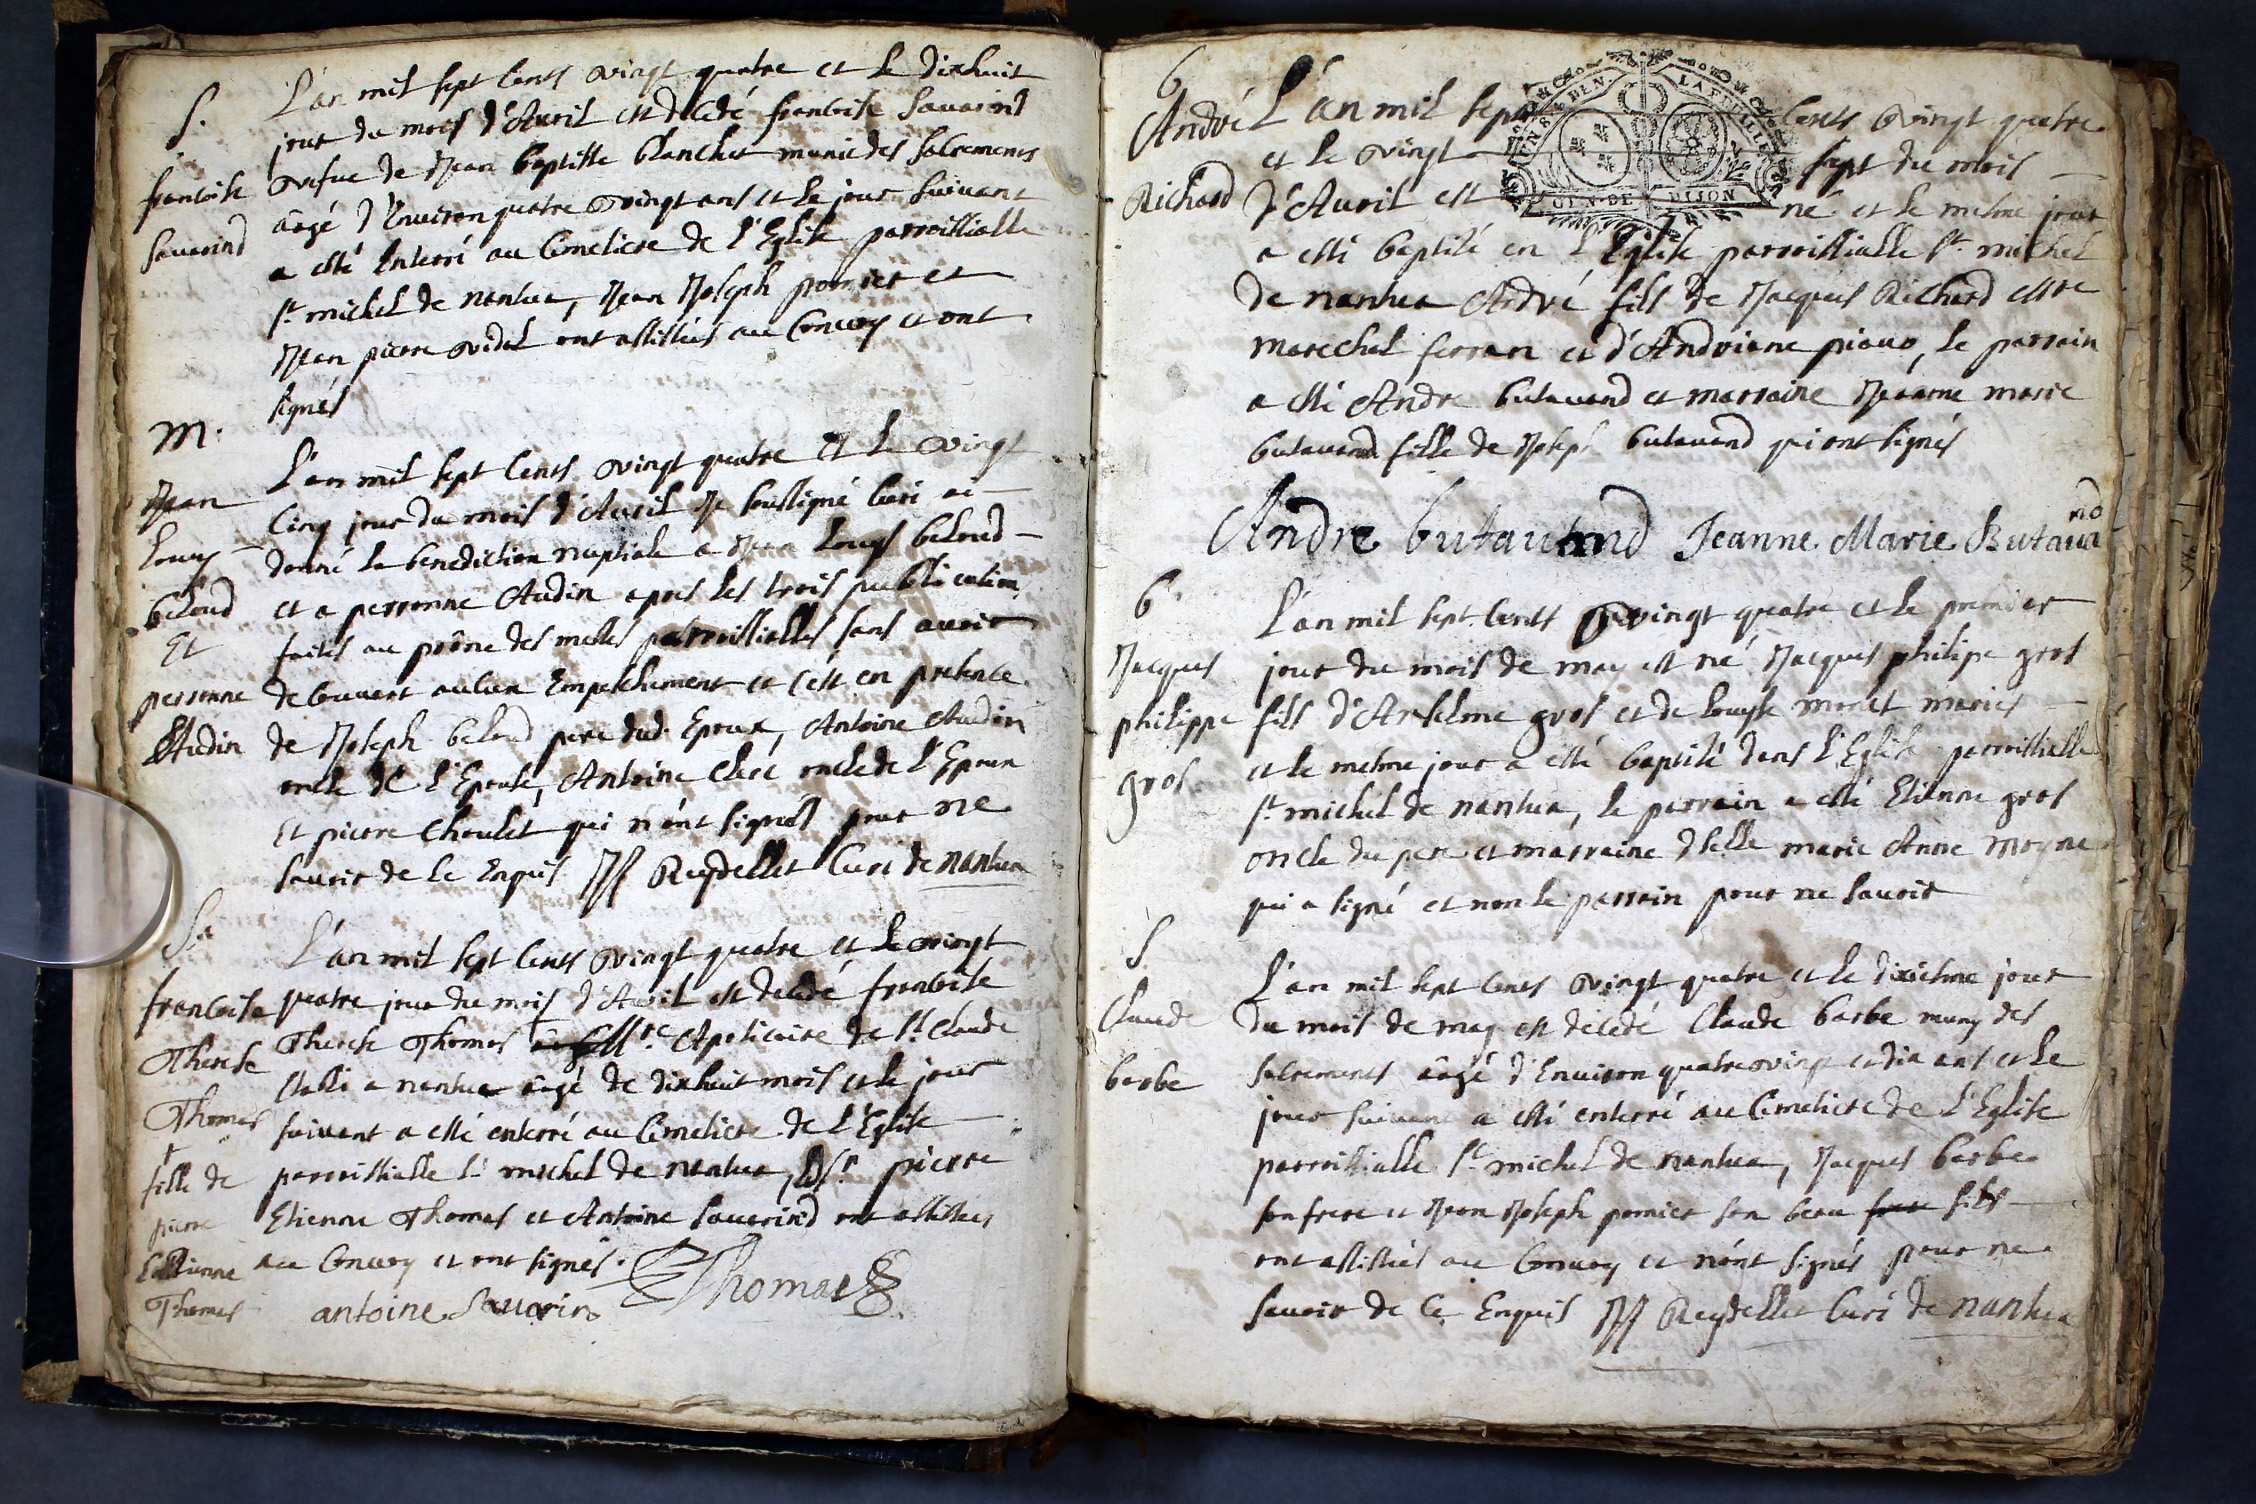 S.
francoise
Sauarind
L'an mil sept cents vingt quatre et le dixhuit
jour du mois d'Auril est decedé francoise Sauarind
vefue de Jean baptiste blanchet munie des sacrements
âagé d'Enuiron quatre vingt ans et le jour suiuant
a esté enterré au Cimetiere de l'Eglise parroissialle
st michel de nantua, Jean Joseph pornier et
Jean pierre vidal ont assistés au Conuoy et ont
signés
M.
Jean
Louys
beloud
Et
perronne
Audin
L'an mil sept cents vingt quatre Et le vingt
Cinq jour du mois d'Auril Je soussigné Curé ai
donné la benediction nuptiale a Jean Louys beloud
et a perronne Audin apres les trois publications
faites au prône des messes parroissialles sans auoir
decouuert aucun Empeschement et c'est en presence
de Joseph beloud pere dud. Epoux, Antoine Audin
oncle de l'Epouse, Antoine Clerc oncle de l'Epoux
Et pierre Choulet qui n'ont signés pour ne
sauoir de ce Enquis JJ Reydellet Curé de nantua
S.
francoise
Therese
Thomas
+
fille de
pierre
Estienne
Thomas
L'an mil sept cents vingt quatre et le vingt
quatre jour du mois d'Auril est decedé francoise
Therese Thomas Apoticaire de st Claude
establi a nantua âagé de dixhuit mois et le jour
suiuant a esté enterré au Cimetiere de l'Eglise
parroissialle st michel de nantua, sr pierre
Etienne Thomas et Antoine Sauarind ont assistés
au Conuoy et ont signés.
antoine Sauarin Thomas
b
André
Richard
L'an mil sept cents vingt quatre
et le vingt sept du mois
d'Auril est né et le mesme jour
a esté baptisé en l'Eglise parroissialle st michel
de nantua André fils de Jacques Richard
marechal ferran et d'Andriane , le parrain
a esté Andre butauand et marraine Jeanne marie
butauand fille de Joseph butauand qui ont signés
GEN. DE DIJON
Andre butauand Jeanne Marie Butauand
b.
Jacques
philippe
gros
L'an mil sept cents vingt quatre et le premier
jour du mois de may est né Jacques philipe gros
fils d'Anselme gros et de Louyse mariés
et le mesme jour a esté baptisé dans l'Eglise parroissialle
st michel de nantua, le parrain a esté Etienne gros
oncle du pere et marraine dlle marie Anne moyne
qui a signé et non le parrain pour ne sauoir
S
Claude
barbe
L'an mil sept cents vingt quatre et le dixiesme jour
du mois de may est décedé Claude barbe muny des
sacrements âagé d'Enuiron quatre vingt et dix ans et le
jour suiuant a esté enterré au Cimetiere de l'Eglise
parroissialle st michel de nantua, Jacques barbe
son frere et Jean Joseph pornier son beau frere fils
ont assistés au Conuoy et n'ont signés pour ne
sauoir de Ce Enquis JJ Reydellet Curé de nantua